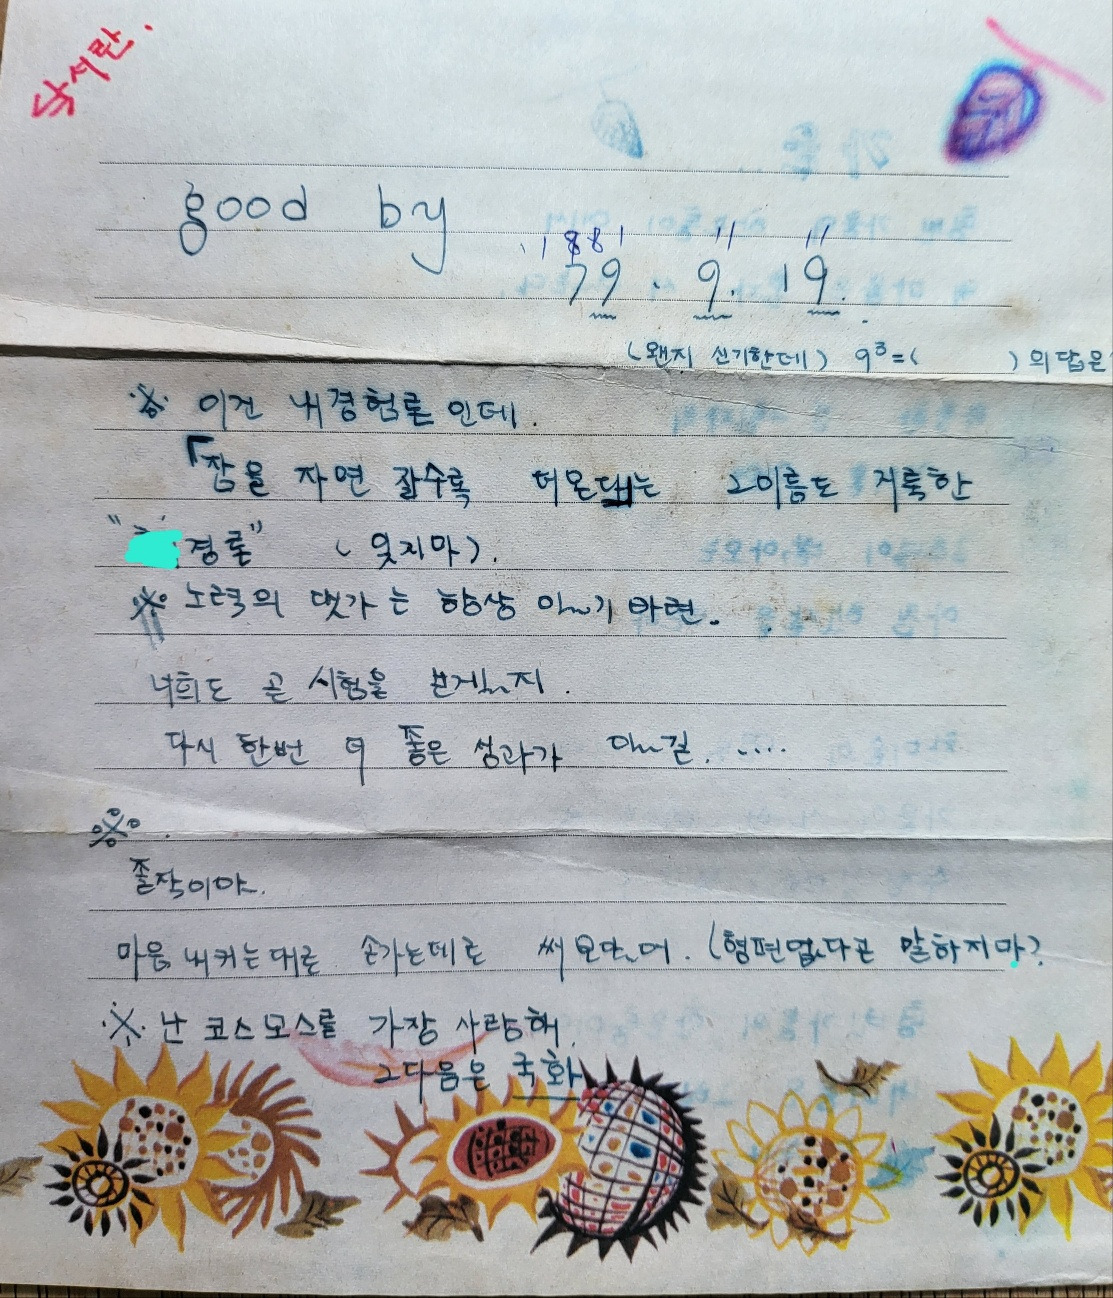 낙서란.
good by
1881 11 11
79. 9. 19.
(왠지 신기한데) 9³=( ) 의 답은
※ 이건 내경험론 인데.
「잠을 자면 잘수록 더온대는 그이름도 거룩한
" 경론" (잊지마).
※ 노력의 댓가는 항상 있기 마련.
너희도 곧 시험을 보겠지.
다시 한번 더 좋은 성과가 있길. ....
※.
졸작이야.
마음 내키는대로 손가는데로 써 보았어. (형편없다곤 말하지마?
※ 난 코스모스를 가장 사랑해.
그다음은 국화